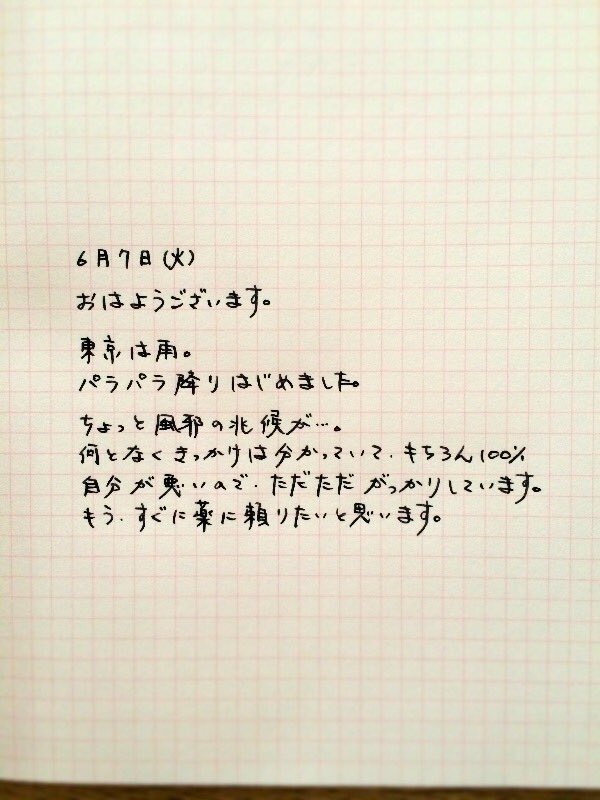 6月7日(火)
おはようございます。
東京は雨。
パラパラ降りはじめました。
ちょっと風邪の兆候が…。
何となくきっかけは分かっていて、もちろん100%
自分が悪いので、ただただがっかりしています。
もう、すぐに薬に頼りたいと思います。